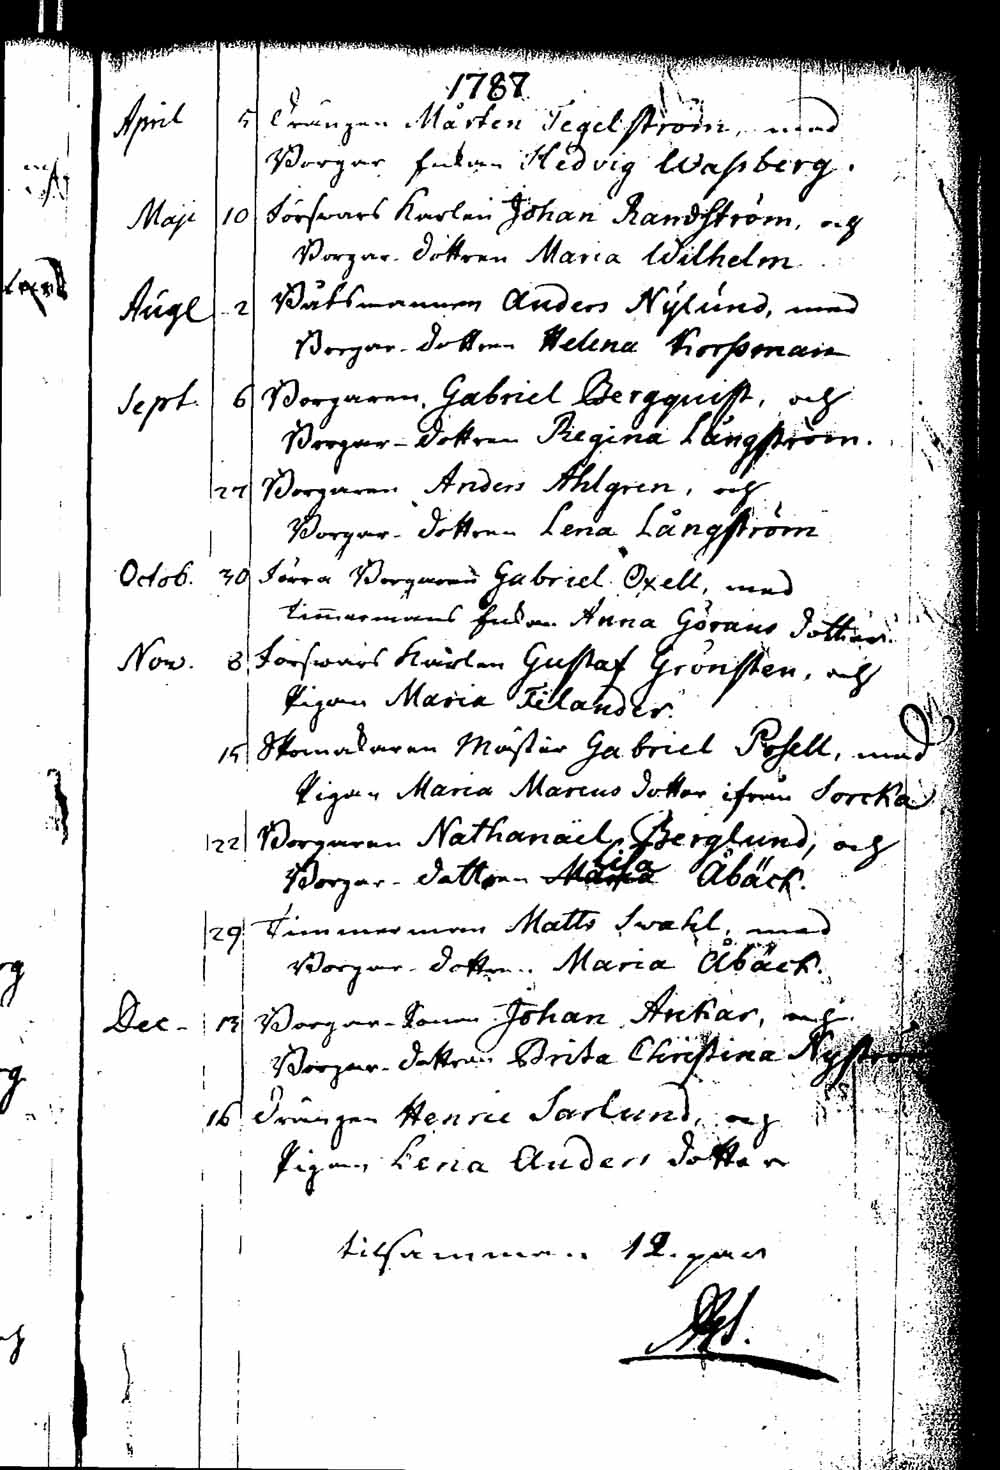 1787
April 5 Drängen Mårten Tegelström, med
Borgar Enkan Hedvig Waßberg.
Maji 10 Försvars Karlen Johan Randström, och
Borgar-dottren Maria Wilhelm
Augt 2 Båtsmannen Anders Nylund, med
Borgar-dottren Helena Korßman
Sept. 6 Borgaren, Gabriel Bergquist, och
Borgar-dottren Regina Långström.
27 Borgaren Anders Ahlgren, och
Borgar-dottren Lena Långström
Octob. 30 Förra Borgaren Gabriel Oxell, med
Timmermans Enkan Anna Görans dotter.
Nov. 8 Försvars Karlen Gustaf Grönsten, och
Pigan Maria Tilander.
15 Skomakaren Mäster Gabriel Posell, med
Pigan Maria Marcus dotter ifrån Sorcka
22 Borgaren Nathanael Berglund, och
Borgar-dottren Maria Lisa Åbäck.
29 Timmerman Matts Swahl, med
Borgar-dottren Maria Åbäck.
Dec- 13 Borgar-Sonen Johan Ankar, och
Borgar-dottren Brita Christina Nyström
16 Drängen Henric Sarlund, och
Pigan Lena Anders dotter
tilsamman 12. par